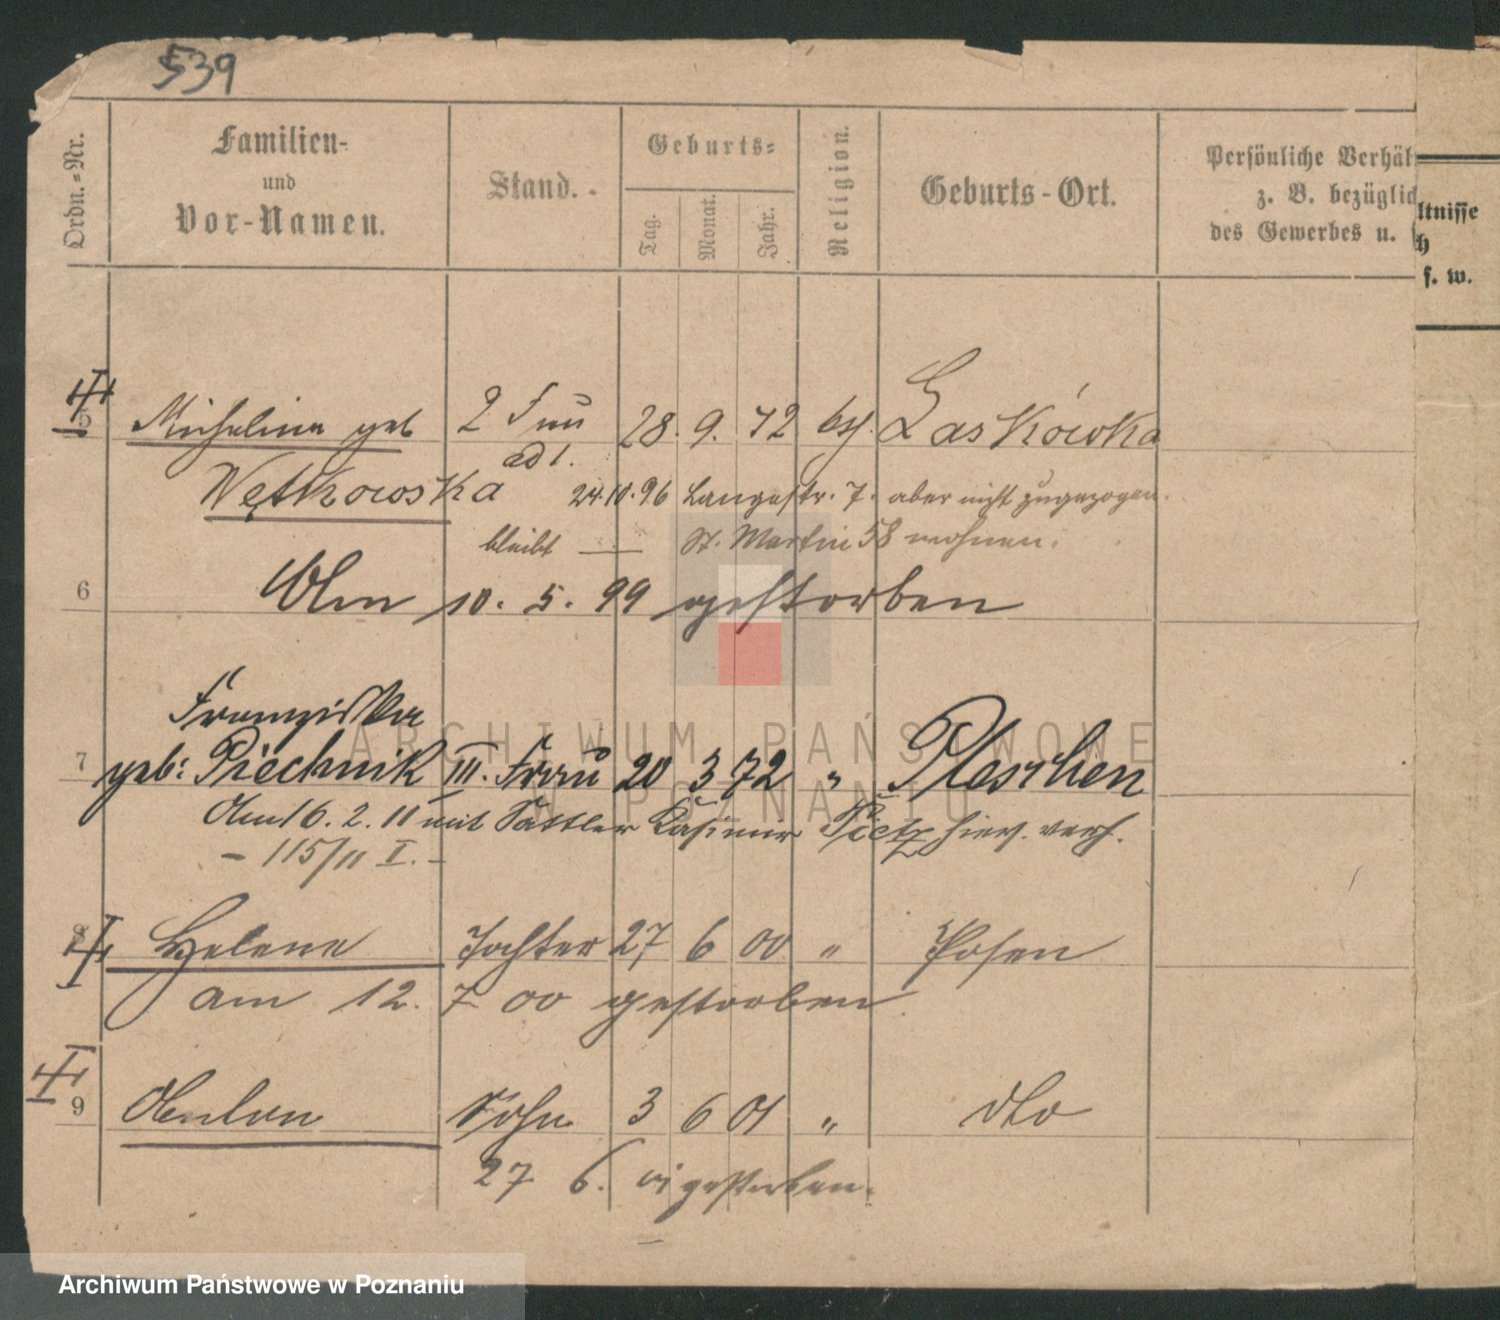 539
Ordn.-Nr.
Familien-
und
Vor-Namen.
Stand.
Geburts-
Tag.
Monat.
Jahr.
Religion.
Geburts-Ort.
Persönliche Verhäl
z. B. bezüglich
des Gewerbes u.
ltnisse
h
f. w.
5 Michalina geb 2 Frau 28. 9. 72 Laskówka
ad 1.
24.10.96 Langestr. 7. aber nicht zugezogen.
bleibt — St. Martin 58 wohnen.
6 Am 10. 5. 99 gestorben
Franziska
7 geb: Piechnik III. Frau 20 3 72 " Pleschen
Am 16. 2. 11 mit Sattler Kasimir Pietz hier. verh.
- 115/11 I. -
8 Helene Tochter 27 6 00 " Posen
am 12. 7 00 gestorben
9 Sohn 3 6 01 " dto
27 6. 01 gestorben.
ARCHIWUM PAŃSTWOWE
W POZNANIU
Archiwum Państwowe w Poznaniu